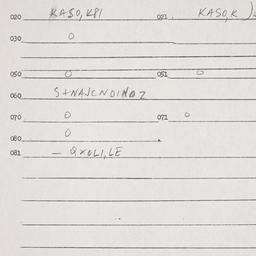 020 KASO, KPI 021. KASO,K
030 0
050 0 051 0
060
070 0 071 0
080 0
081 — QXOLI, LE